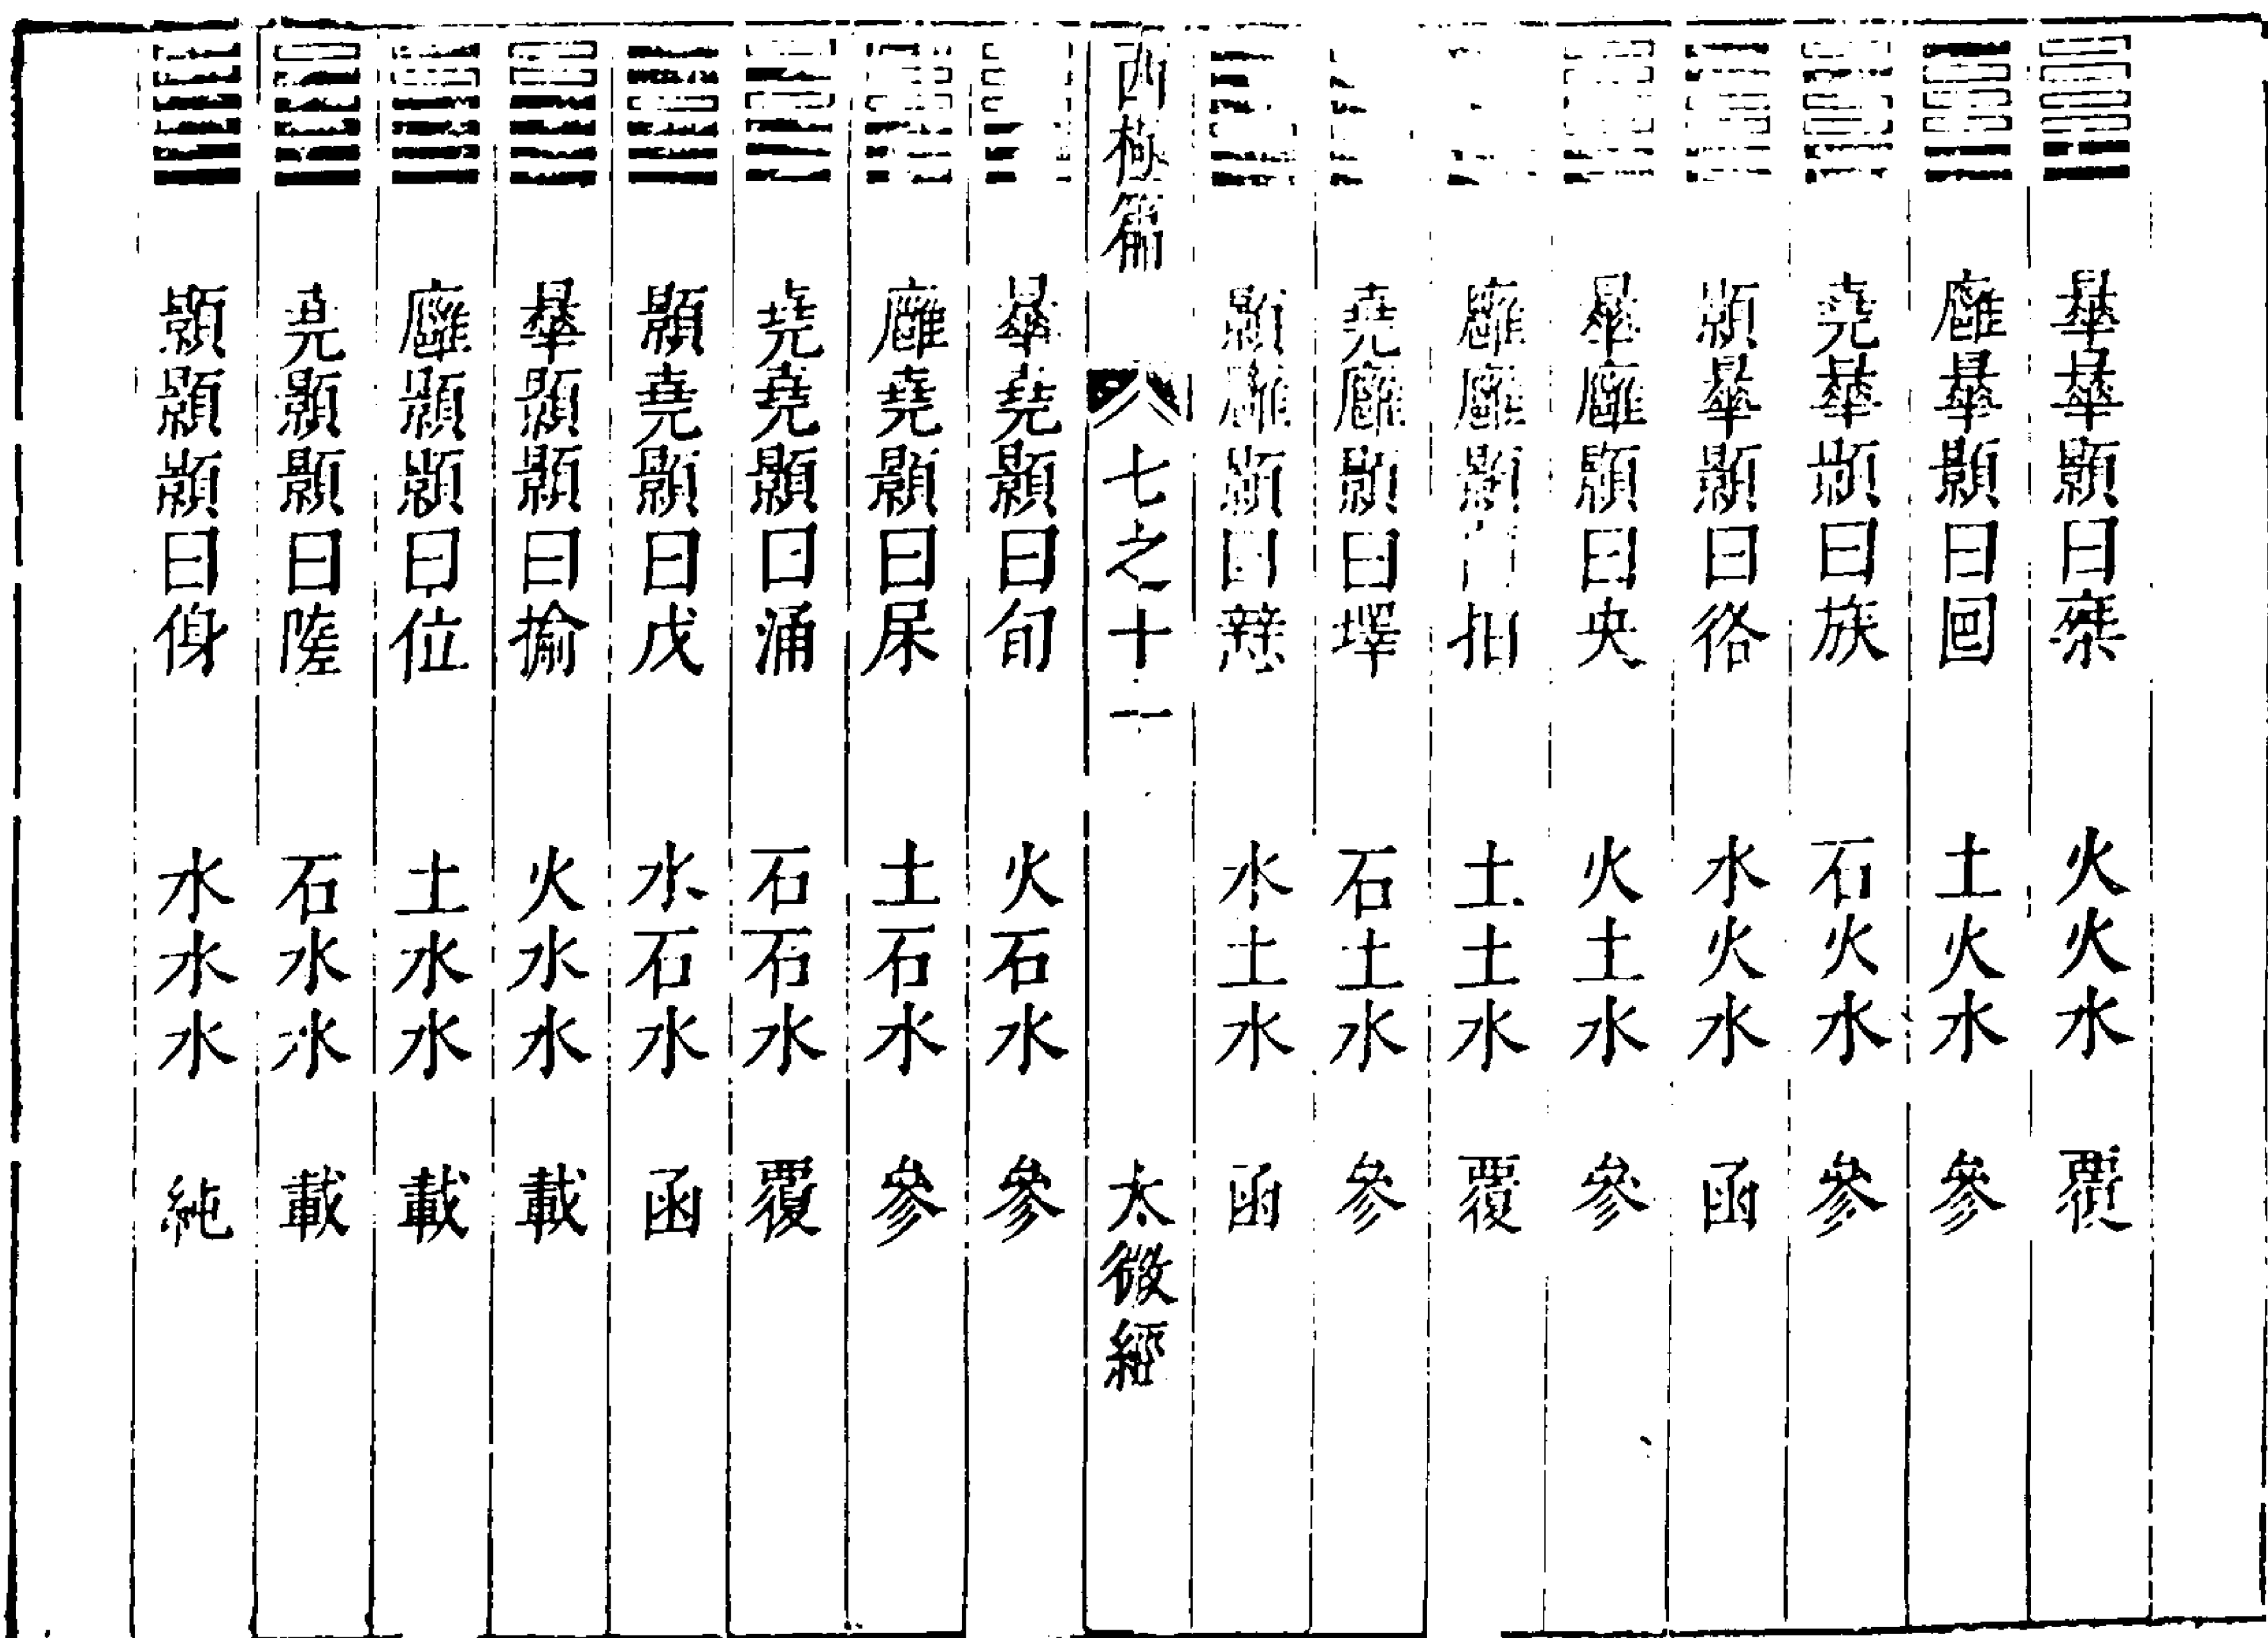 曅曅顥曰 火火水 覆
廱曅顥曰囬 土火水 參
堯曅顥曰族 石火水 參
顥曅顥曰 水火水 函
曅廱顥曰央 火土水 參
廱廱顥曰 土土水 覆
堯廱顥曰墿 石土水 參
顥廱顥曰 水土水 函
西極篇 七之十一 太微經
曅堯顥曰旬 火石水 參
廱堯顥曰杘 土石水 參
堯堯顥曰涌 石石水 覆
顥堯顥曰戊 水石水 函
曅顥顥曰揄 火水水 載
廱顥顥曰位 土水水 載
堯顥顥曰 石水水 載
顥顥顥曰 水水水 純